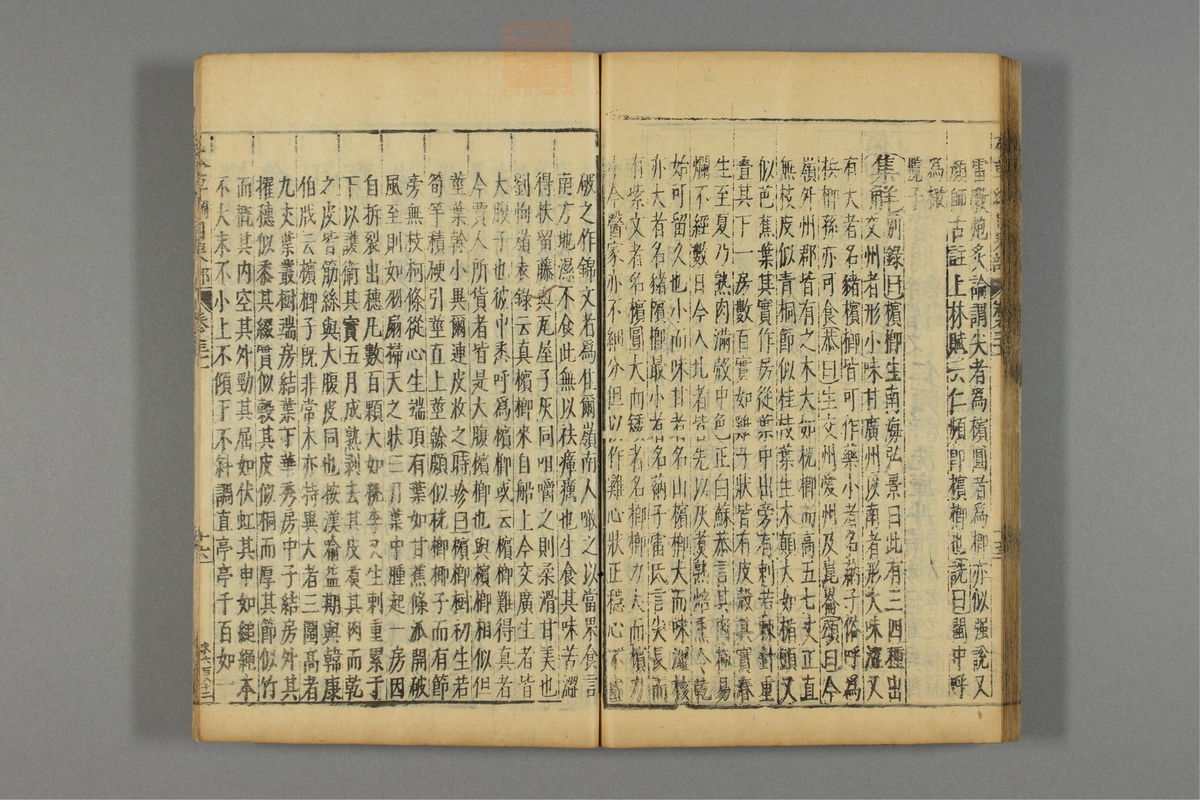 雷斅炮炙論謂尖者為檳圓者為榔亦似強說又
顏師古註上林賦云仁頻即檳榔也詵曰閩中呼
為橄
欖子
集解別錄曰檳榔生南海弘景曰此有三四種出
交州者形小味甘廣州以南者形大味澀又
有大者名豬檳榔皆可作藥小者名蒳子俗呼為
檳榔孫亦可食恭曰生交州愛州及崑崙頌曰今
嶺外州郡皆有之木大如桄榔而高五七丈正直
無枝皮似青桐節似桂枝葉生木顛大如楯頭又
似芭蕉葉其實作房從葉中出旁有刺若棘針重
疊其下一房數百實如雞子狀皆有皮殼其實春
生至夏乃熟肉滿殼中色正白蘇恭言其肉極易
爛不經數日今入北者皆先以灰煮熟焙熏令乾
始可留久也小而味甘者名山檳榔大而味澀核
亦大者名豬檳榔最小者名蒳子雷氏言尖長而
有紫文者名檳圓大而矮者名榔榔力大而檳力
小今醫家亦不細分但以作雞心狀正穩心不虛
破之作錦文者為佳爾嶺南人啖之以當果食言
南方地濕不食此無以祛瘴癘也生食其味苦澀
得扶留藤與瓦屋子灰同咀嚼之則柔滑甘美也
劉恂嶺表錄云真檳榔來自舶上今交廣生者皆
大腹子也彼中悉呼為檳榔或云檳榔難得真者
今賈人所貨者皆是大腹檳榔也與檳榔相似但
莖葉幹小異爾連皮收之時珍曰檳榔樹初生若
筍竿積硬引莖直上莖幹頗似桄榔椰子而有節
旁無枝柯條從心生端頂有葉如甘蕉條派開破
風至則如羽扇掃天之狀三月葉中腫起一房因
自拆裂出穗凡數百顆大如桃李又生刺重累于
下以護衛其實五月成熟剝去其皮煮其肉而乾
之皮皆筋絲與大腹皮同也按漢喻益期與韓康
伯牋云檳榔子既非常木亦特異大者三圍高者
九丈葉叢樹端房結葉下華秀房中子結房外其
擢穗似黍其綴實似穀其皮似桐而厚其節似竹
而概其內空其外勁其屈如伏虹其申如縋繩本
不大末不小上不傾下不斜調直亭亭千百如一